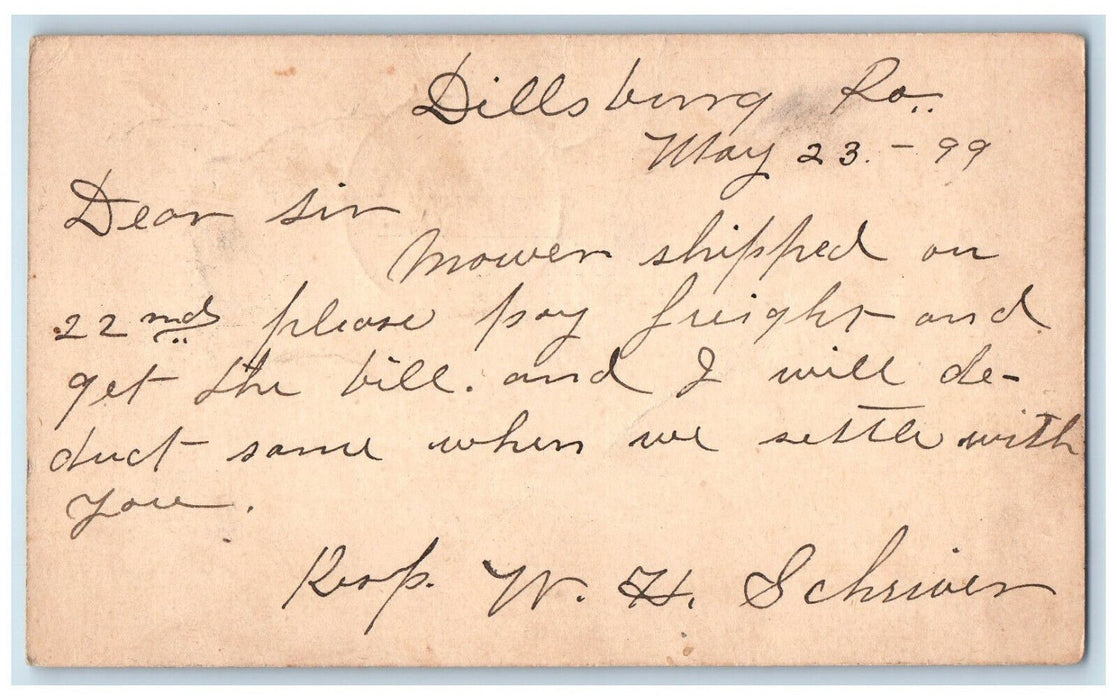 Dillsburg Pa.
May 23. - 99
Dear Sir
Mower shipped on
22nd please pay freight and
get the bill. and I will de-
duct same when we settle with
you.
Resp. W. H. Schriver